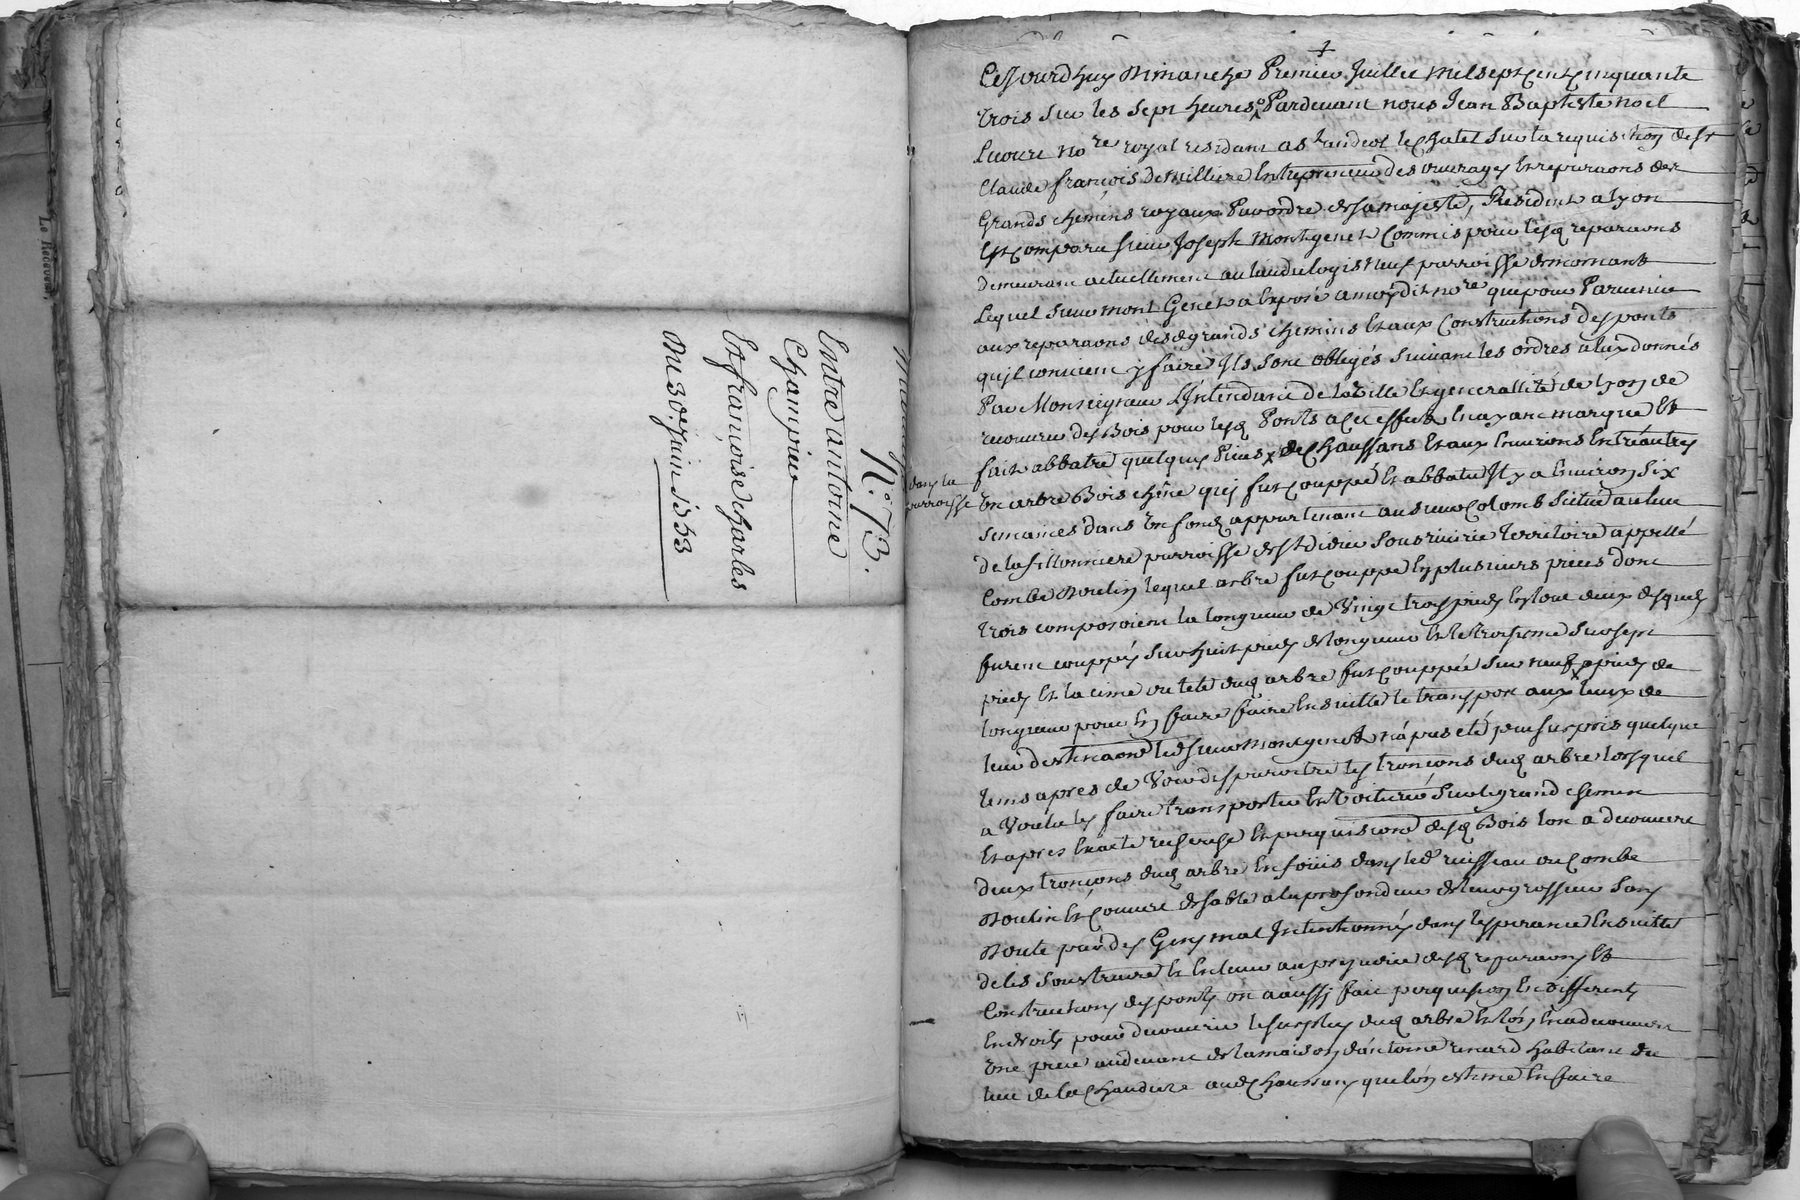 N.° 73.
Entre antoine
Champin
Et françoise Charles
Du 30.e juin 1753
Cejourdhuy dimanche Premier Juillet mil sept cent cinquante
trois sur les sept heures Pardevant nous Jean Baptiste noel
no.re royal residant a St andeol le Chatel sur la requisition de Sr
Claude françois demillere Entrepreneur des ouvrages Et reparaons des
Grands chemins royaux Par ordre de sa majesté, Resident a lyon
Est comparu sieur Joseph Montgenet Commis pour lesd reparaons
demeurant actuellement au lieu du logis neuf parroisse de mornant
Lequel sieur mont Genet a Exposé a moydit no.re que pour Parvenir
aux reparaons desd grands chemins Et aux Constructions des ponts
quil convient y faire Ils sont obligés suivant les ordres a eux donnés
Par Monseigneur L'Intendant de la Ville Et generallité de lyon de
recouvrer des Bois pour lesd Ponts a Cet effet En ayant marqué Et
fait abbatre quelques Pieds x de Chaussans Et aux Environs Entréautres
dans la
parroisse
Un arbre Bois chêne qui fut Couppé Et abbatu Il y a Environ six
semaines dans Un fond appartenant au sieur Colomb situé au lieu
de la fillonniere parroisse de St didier sous riverie territoire appellé
Combe Moulin lequel arbre fut Couppé En plusieurs pieces dont
trois composoient la longueur de Vingt trois pieds En tout deux desquels
furent couppés sur huit pieds de longueur Et le troisieme sur sept
pieds Et la cime ou tete dud arbre fut Couppée sur neuf pieds de
longueur pour En faire faire Ensuitte le transport aux lieux de
leur destinaon led sieur Montgenet n'a pas eté peu surpris quelque
tems apres de Voir disparoitre les troncons dud arbre lorsquil
a Voulu les faire transporter Et Voiturer sur le grand chemin
Et apres Exacte recherche Et perquisition desd Bois lon a decouvert
deux troncons dud arbre Enfouis dans led ruisseau ou Combe
Moulin Et Couvert de sable a la profondeur de leur grosseur sans
doute par des Gens mal Intentionnés dans lesperance Ensuitte
de les soustraire Et Enlever au prejudice desd reparaons Et
Constructions des ponts on a aussy fait perquision En differents
Endroits pour decouvrir le surplus dud arbre Et lon En a decouvert
Une piece audevant de la maison d'antoine renard habitant du
lieu de la Chaudure aud Chaussans que lon estime En faire